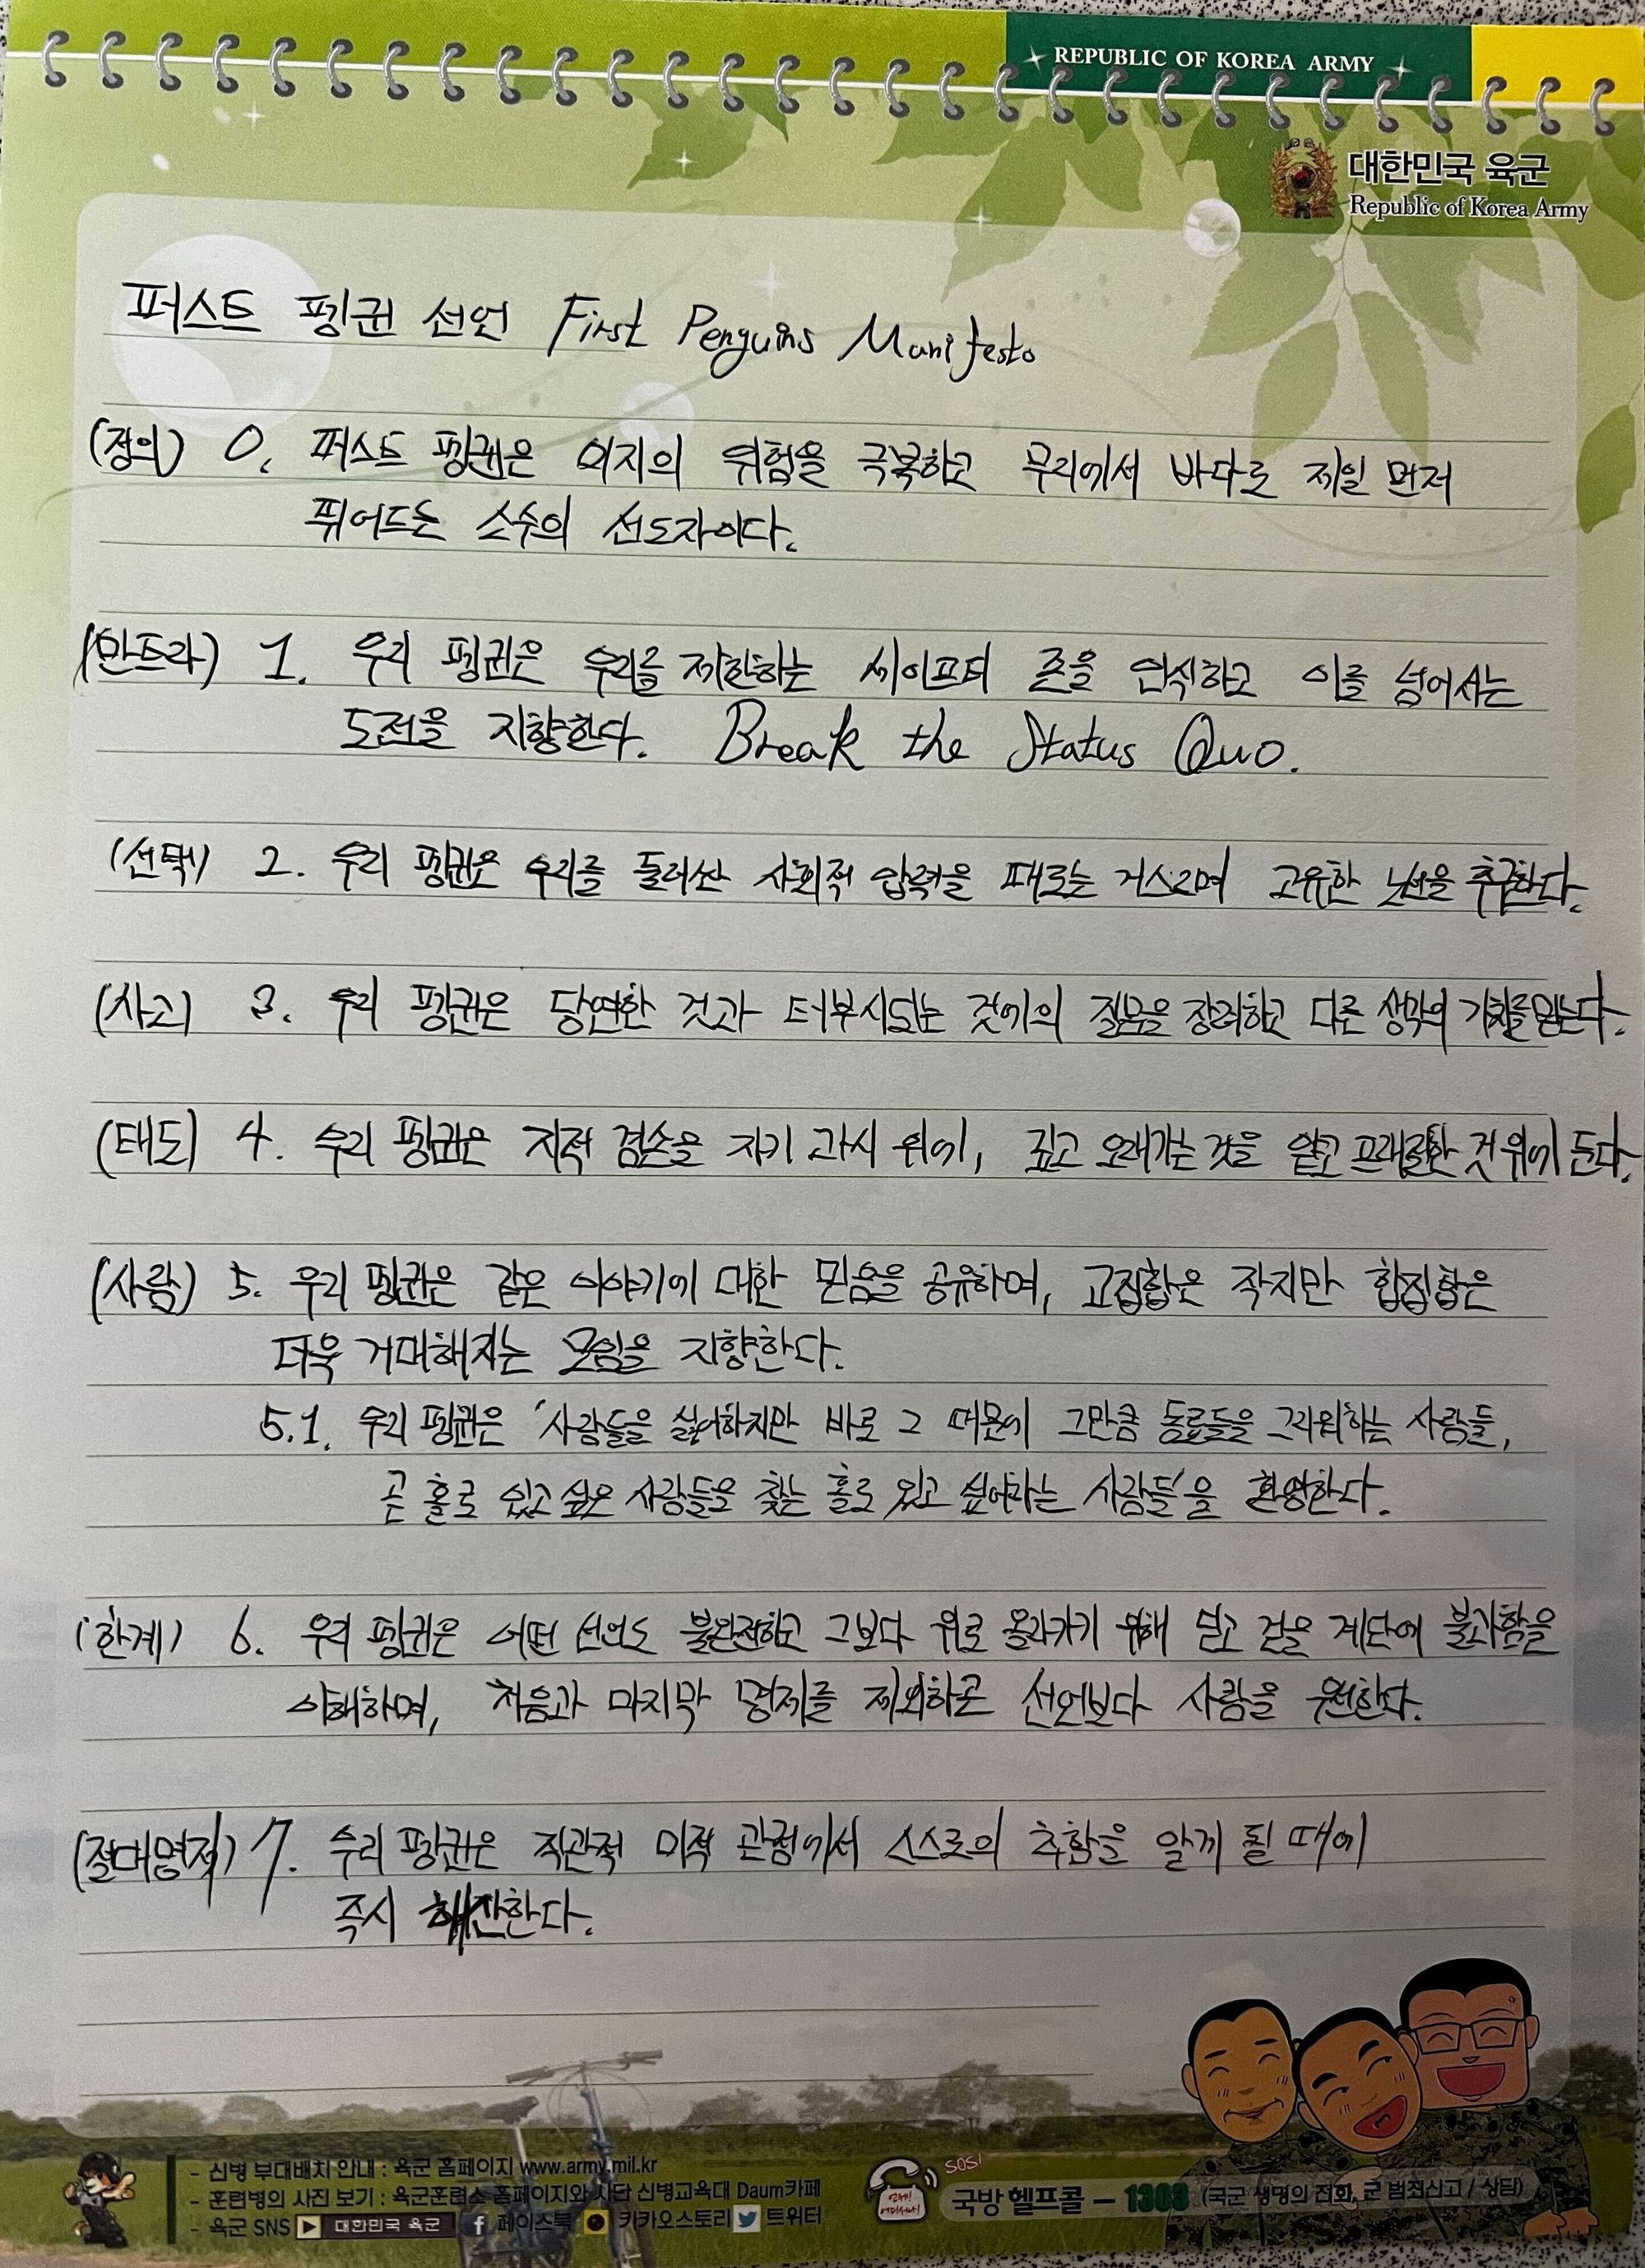 REPUBLIC OF KOREA ARMY
대한민국 육군
Republic of Korea Army
퍼스트 펭귄 선언 First Penguins Manifesto
(정의) 0. 퍼스트 펭귄은 미지의 위험을 극복하고 무리에서 바다로 제일 먼저
뛰어드는 소수의 선도자이다.
(만트라) 1. 우리 펭귄은 우리를 제한하는 세이프티 존을 인식하고 이를 넘어서는
도전을 지향한다. Break the Status Quo.
(선택) 2. 우리 펭귄은 우리를 둘러싼 사회적 압력을 때로는 거스르며 고유한 노선을 추구한다.
(사고) 3. 우리 펭귄은 당연한 것과 터부시되는 것에의 질문을 장려하고 다른 생각의 가치를 믿는다.
(태도) 4. 우리 펭귄은 지적 겸손을 자기 과시 위에, 깊고 오래가는 것을 얕고 프래질한 것 위에 둔다.
(사람) 5. 우리 펭귄은 같은 이야기에 대한 믿음을 공유하며, 교집합은 작지만 합집합은
더욱 거대해지는 모임을 지향한다.
5.1. 우리 펭귄은 '사람들을 싫어하지만 바로 그 때문에 그만큼 동료들을 그리워하는 사람들,
곧 홀로 있고 싶은 사람들을 찾는 홀로 있고 싶어하는 사람들'을 환영한다.
(한계) 6. 우리 펭귄은 어떤 선언도 불완전하고 그보다 위로 올라가기 위해 딛고 걸을 계단에 불과함을
이해하며, 처음과 마지막 명제를 제외하곤 선언보다 사람을 우선한다.
(절대명제) 7. 우리 펭귄은 직관적 미적 관점에서 스스로의 추함을 알게 될 때에
즉시 해산한다.
- 신병 부대배치 안내 : 육군 홈페이지 www.army.mil.kr
- 훈련병의 사진 보기 : 육군훈련소 홈페이지와 사단 신병교육대 Daum카페
- 육군 SNS 대한민국 육군 f 페이스북 카카오스토리 트위터
SOS!
언제! 어디서나!
국방헬프콜 - 1303 (국군 생명의 전화, 군 범죄신고 / 상담)